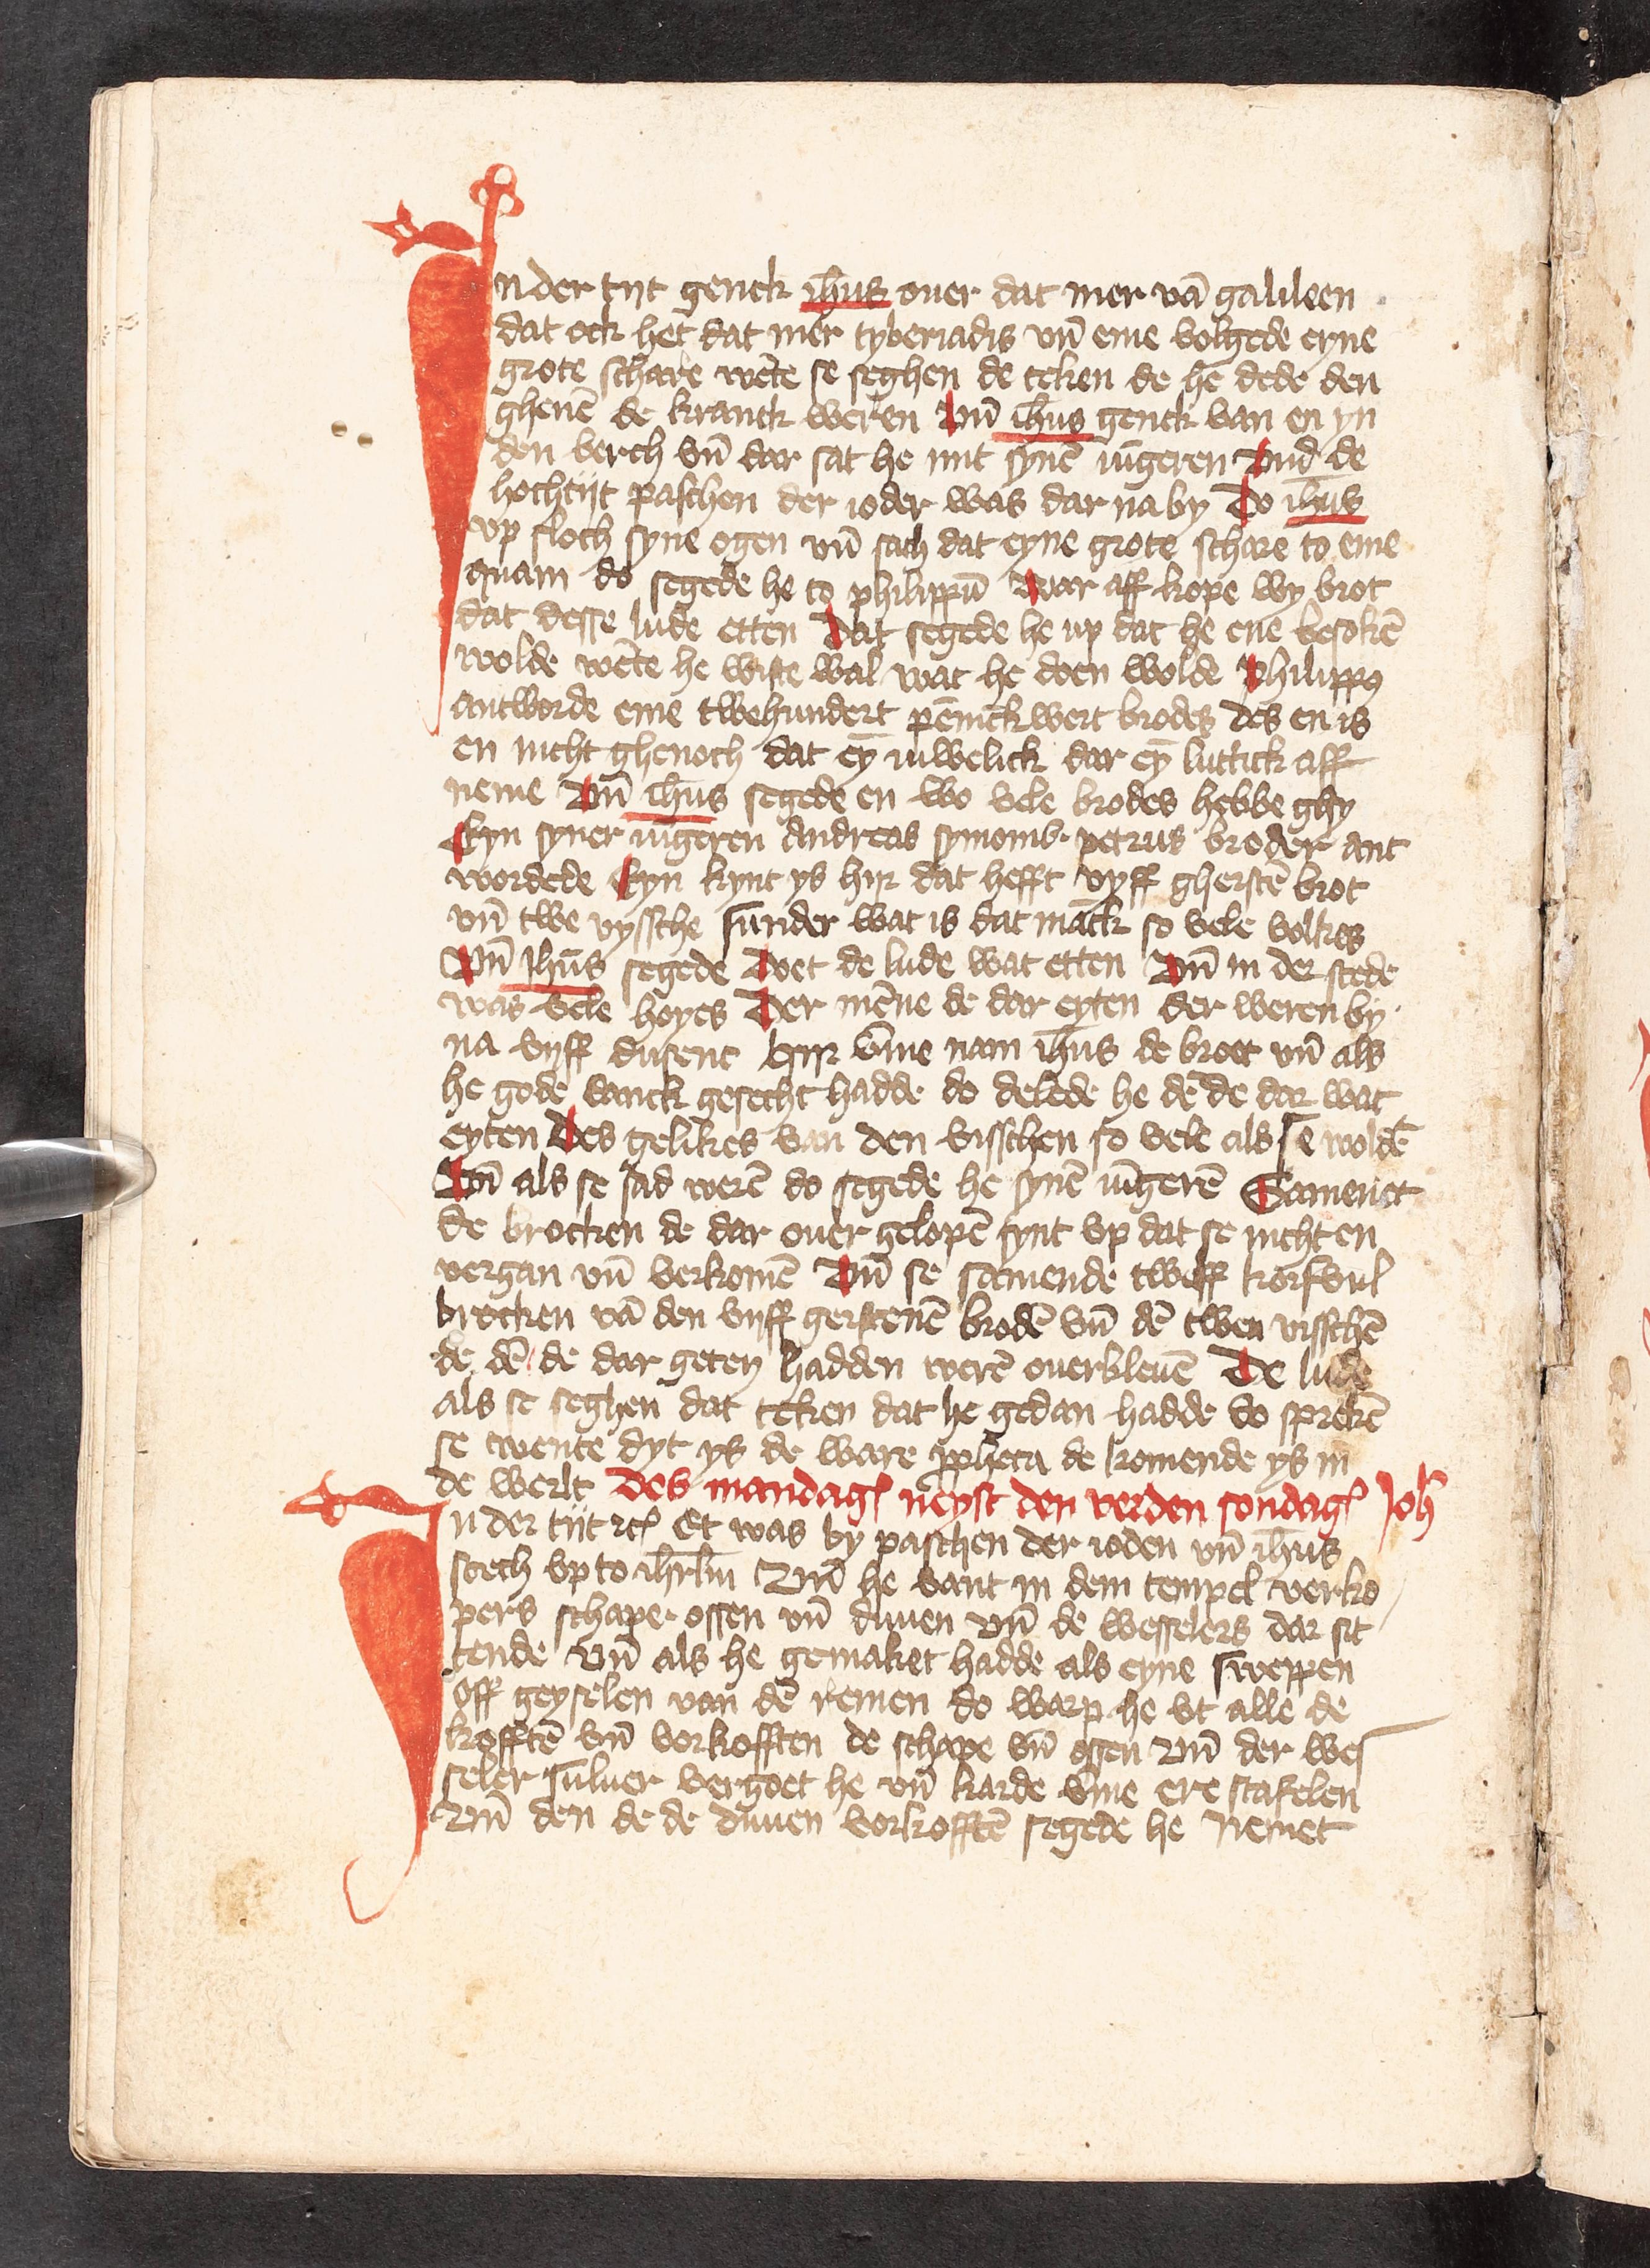 In der tyt genck ihūs ouer dat mer vā galileen
dat ock het dat mer tyberiadis vn̄ eme volgede eyne
grote schare wēte se seghen de teken de he dede den
ghenē de kranck weren Vn̄ ihūs genck van en yn
den berch vn̄ dar sat he mit synē iūgeren Vnd de
hochtijt paschen der ioder was dar na by Do ihūs
vp sloch syne ogen vn̄ sach dat eyne grote schare to eme
quam do segede he to philippū War aff kope wy brot
dat desse lude etten Dat segede he up dat he ene besokē
wolde wēte he wiste wal wat he doen wolde Philippꝰ
antworde eme twehundert pēnickwert brodes des en is
en nicht ghenoch dat eȳ iuwelick dar eȳ luttick aff
neme Vn̄ ihūs segede en wo vele brodes hebbe ghy
Eyn syner iūgeren Andreas symonis petrus broder ant
wordede Eyn kynt ys hyr dat hefft vyff gherstē brot
vn̄ twe vyssche sunder wat is dat māck so vele volkes
Vn̄ Jhūs segede Doet de lude wat etten Vn̄ in der stede
was vele hoyes Der mēne de dar eyten der weren by
na vyff dusent Hyr vme nam ihūs de broet vn̄ als
he gode danck gesecht hadde do delede he dē de dar wat
eyten Des gelikes van den visschen so vele als se woldē
Vn̄ als se sad werē do segede he synē iūgerē Samenet
de brocken de dar ouer gelopē synt vp dat se nicht en
vergan vn̄ verkomē Vn̄ se samende twelff korfvul
brocken vā den vyff gerstenē brodē vn̄ dē twen visschē
de dē de dar geten hadden werē ouerbleuē De lude
als se seghen dat teken dat he gedan hadde do sprekē
se twente dyt ys de ware ꝓpheta de komende ys in
de werlt Des mandagſ neyst den verden sondagſ Joh̄
In der tijt rcſ Et was by paschen der ioden vn̄ ihūs
stech vp to ihrlm̄ Vn̄ he vant in dem tempel verko
pers schape ossen vn̄ duuen vn̄ de wesselers dar sit
tende Vn̄ als he gemaket hadde als eyne sweppen
off geyselen van dē remen do warp he vt alle de
kofftē vn̄ vorkofften de schape vn̄ ossen Vn̄ der wes
seler suluer vergoet he vn̄ karde vme ere stafelen
Vn̄ den de de duuen vorkofftē segede he Nemet